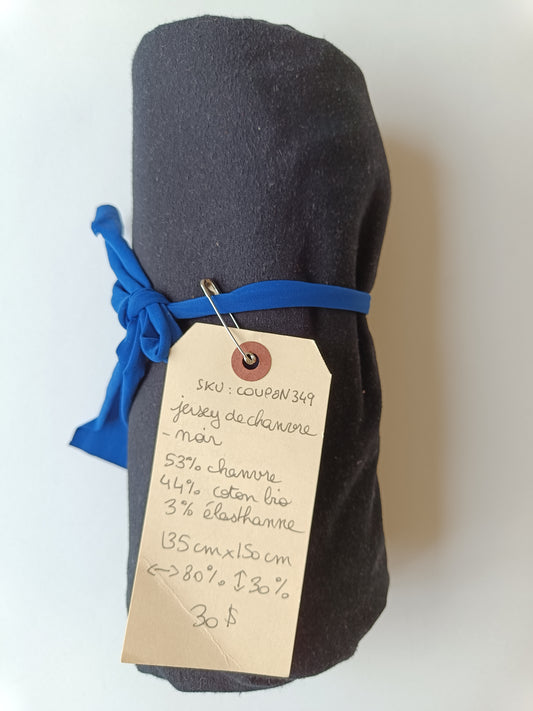 SKU : COUPON349
jersey de chanvre
- noir
53% chanvre
44% coton bio
3% élasthanne
135cm x 150cm
<-> 80% ↕ 30%
30 $